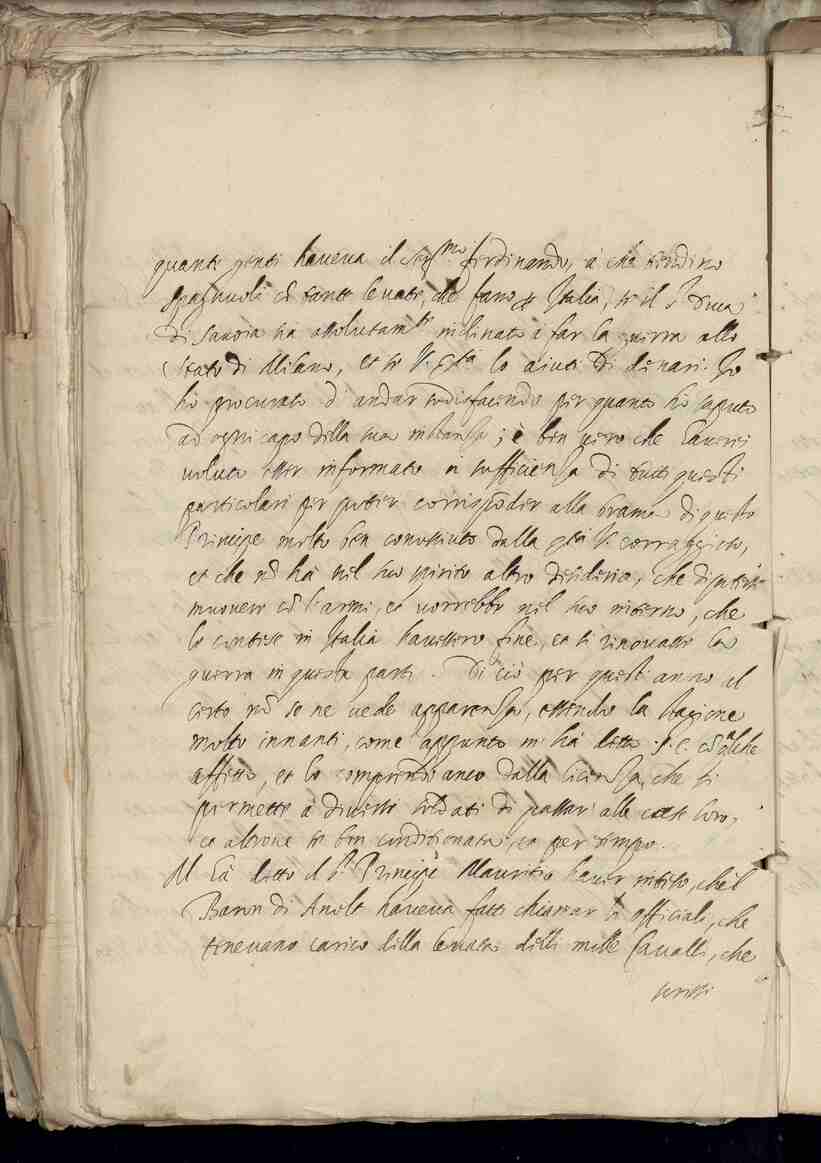 quante genti haueua il Ser.mo ferdinando, à che tendino
spagnuoli cõ tante leuate, che fano in Italia, se il s.r Duca
di Sauoia ha assolutam.te inclinato à far la guerra allo
Stato di Milano, et se V. Ser.tà lo aiuti di denari. Io
hò procurato d' andar sodisfacendo per quanto hò saputo
ad ogni capo della sua instanza; è ben uero che hauerei
uoluto esser informato a sufficienza di tutti questi
particolari per poter corrispõder alla brama di questo
Principe molto ben conosciuto dalla Ser.tà V. corraggioso,
et che nõ hà nel suo spirito altro desiderio, che di poter
muouere cõ l'armi, et uorrebbe nel suo interno, che
le contese in Italia hauessero fine, et si rinouasse la
guerra in queste parti. Di ciò per quest' anno al
certo nõ se ne uede apparenza, essendo la stagione
molto innanti, come appunto m' hà detto S. E. cõ qualche
affetto, et lo comprendi anco dalla licenza, che si
permette à diuersi soldati di passar' alle case loro,
et altroue se ben conditionata, et per tempo.
M' hà detto il s.r Principe Mauritio hauer inteso, che'l
Baron di Anolt haueua fatti chiamar li officiali, che
teneuano carico della leuata delli mille Caualli, che
scrissi